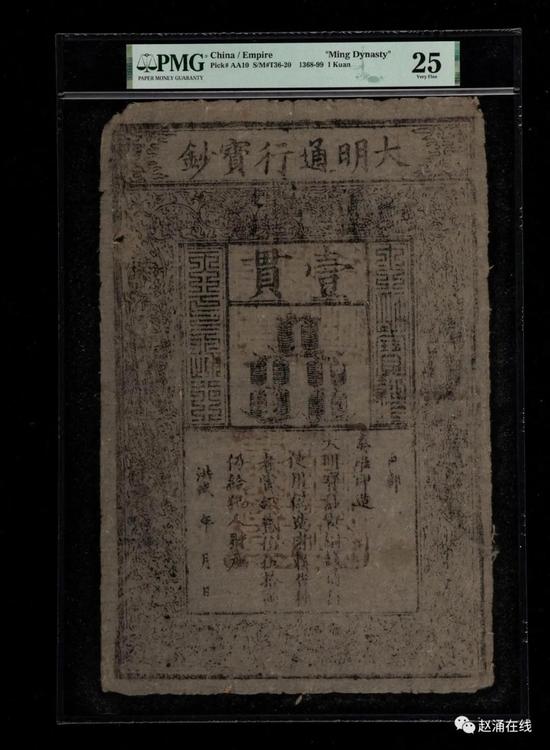 PMG
PAPER MONEY GUARANTY
China / Empire "Ming Dynasty"
Pick# AA10 S/M#T36-20 1368-99 1 Kuan
25
Very Fine
大明通行寶鈔
壹貫
户部
奏准印造
大明寶鈔與銅錢通行
使用偽造者斬告捕
者賞銀貳伯伍拾兩
仍給犯人財産
洪武 年 月 日
赵涌在线